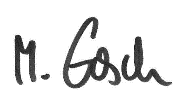 M. Gosch